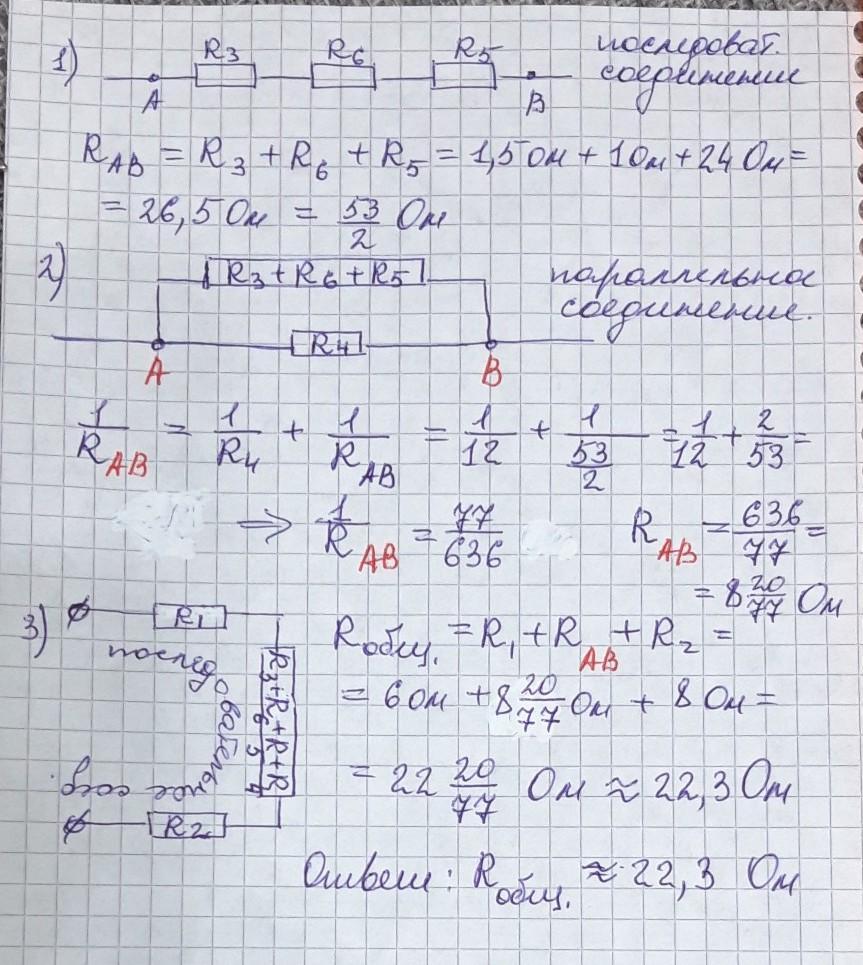 1) R3 R6 R5 последоват.
A B соединение
R AB = R3 + R6 + R5 = 1,5 Ом + 1 Ом + 24 Ом =
= 26,5 Ом = 53/2 Ом
2) R3 + R6 + R5 параллельное
соединение.
R4
A B
1/R AB = 1/R4 + 1/R AB = 1/12 + 1/(53/2) = 1/12 + 2/53 =
⇒ 1/R AB = 77/636 R AB = 636/77 =
= 8 20/77 Ом
3) R1 R общ. = R1 + R AB + R2 =
последовательное соед.
R3+R6+R5+R4
= 6 Ом + 8 20/77 Ом + 8 Ом =
= 22 20/77 Ом ≈ 22,3 Ом
R2
Ответ: R общ. ≈ 22,3 Ом